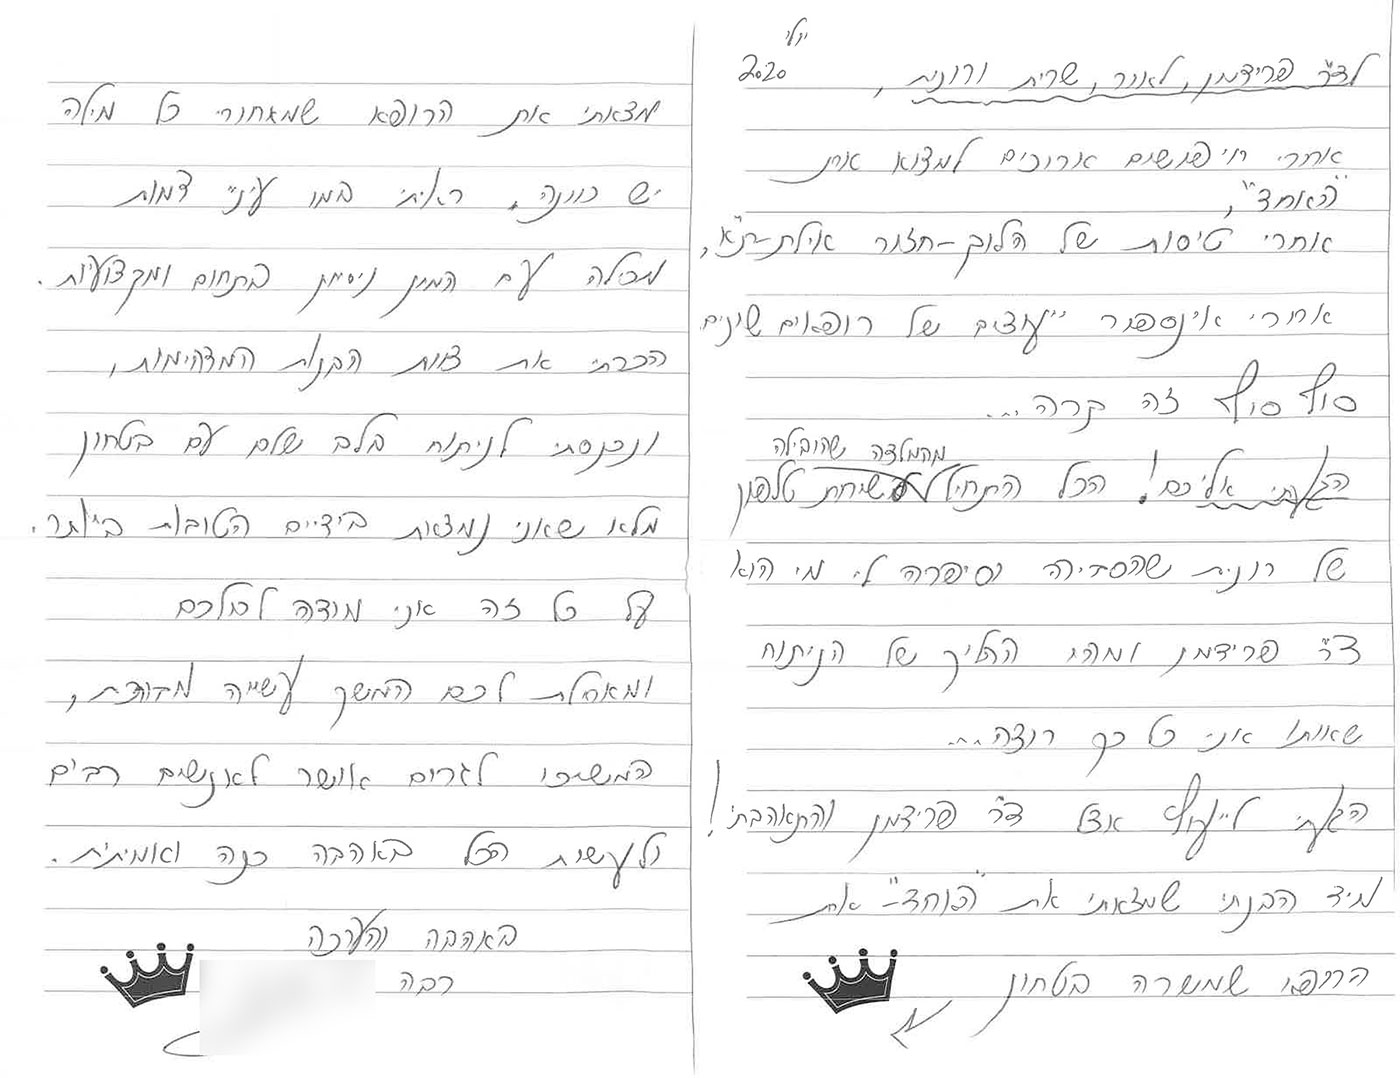 יולי
2020
לד"ר פרידמן, לאור, שרית ורונית,
אחרי חיפושים ארוכים למצוא את
"האחד",
אחרי טיסות של הלוך-חזור אילת-ת"א,
אחרי אינספור ייעוצים של רופאים שונים
סוף סוף זה קרה...
הגעתי אליכם! הכל התחיל מהמלצה שהובילה לשיחת טלפון
של רונית שהסבירה וסיפרה לי מי הוא
ד"ר פרידמן ומהו ההליך של הניתוח
שאותו אני כל כך רוצה...
הגעתי לייעוץ אצל ד"ר פרידמן והתאהבתי!
מיד הבנתי שמצאתי את "האחד" את
הרופא שמשרה בטחון
מצאתי את הרופא שמאחורי כל מילה
יש כוונה. ראיתי במו עיניי דמות
מכילה עם המון ניסיון בתחום ומקצועיות.
הכרתי את צוות הבנות המדהימות,
ונכנסתי לניתוח בלב שלם עם בטחון
מלא שאני נמצאת בידיים הטובות ביותר.
על כל זה אני מודה לכולכם
ומאחלת לכם המשך עשייה מבורכת,
המשיכו לגרום אושר לאנשים רבים
ולעשות הכל באהבה כנה ואמיתית.
באהבה והערכה
רבה